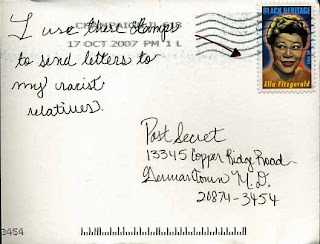 CHAMPAIGN IL 618
17 OCT 2007 PM 1 L
BLACK HERITAGE
Ella Fitzgerald
I use these stamps
to send letters to
my racist
relatives.
Post Secret
13345 Copper Ridge Road
Germantown M.D.
20874-3454
3454